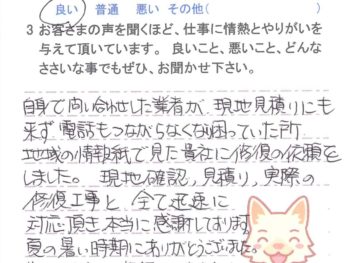 良い 普通 悪い その他( )
3 お客さまの声を聞くほど、仕事に情熱とやりがいを
与えて頂いています。良いこと、悪いこと、どんな
ささいな事でもぜひ、お聞かせ下さい。
自身で問い合わせした業者が、現地見積りにも
来ず電話もつながらなくなり困っていた所
地域の情報紙で見た貴社に修復の依頼を
しました。 現地確認、見積り、実際の
修復工事と 全て迅速に
対応頂き、本当に感謝しております。
夏の暑い時期にありがとうございました。